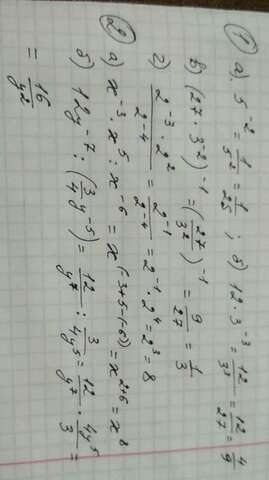 ① а) 5⁻² = 1/5² = 1/25 ; б) 12 · 3⁻³ = 12/3³ = 12/27 = 4/9
в) (27 · 3⁻²)⁻¹ = (27/3²)⁻¹ = 9/27 = 1/3
г) (2⁻³ · 2²)/2⁻⁴ = 2⁻¹/2⁻⁴ = 2⁻¹ · 2⁴ = 2³ = 8
② а) x⁻³ · x⁵ : x⁻⁶ = x^(-3+5-(-6)) = x²⁺⁶ = x⁸
б) 12y⁻⁷ : (3/4 y⁻⁵) = 12/y⁷ : 3/4y⁵ = 12/y⁷ · 4y⁵/3 =
= 16/y²